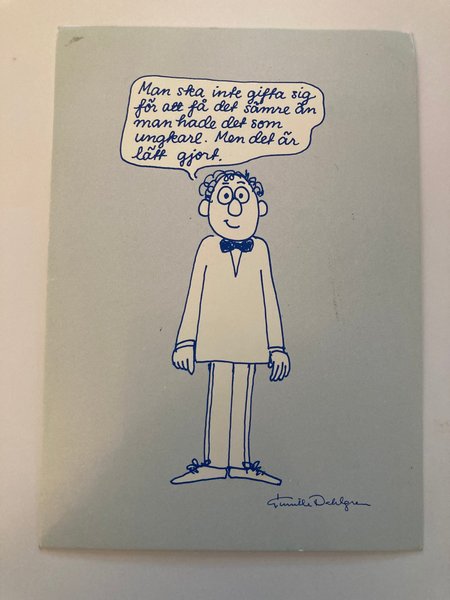 Man ska inte gifta sig
för att få det sämre än
man hade det som
ungkarl. Men det är
lätt gjort.
Gunilla Dahlgren